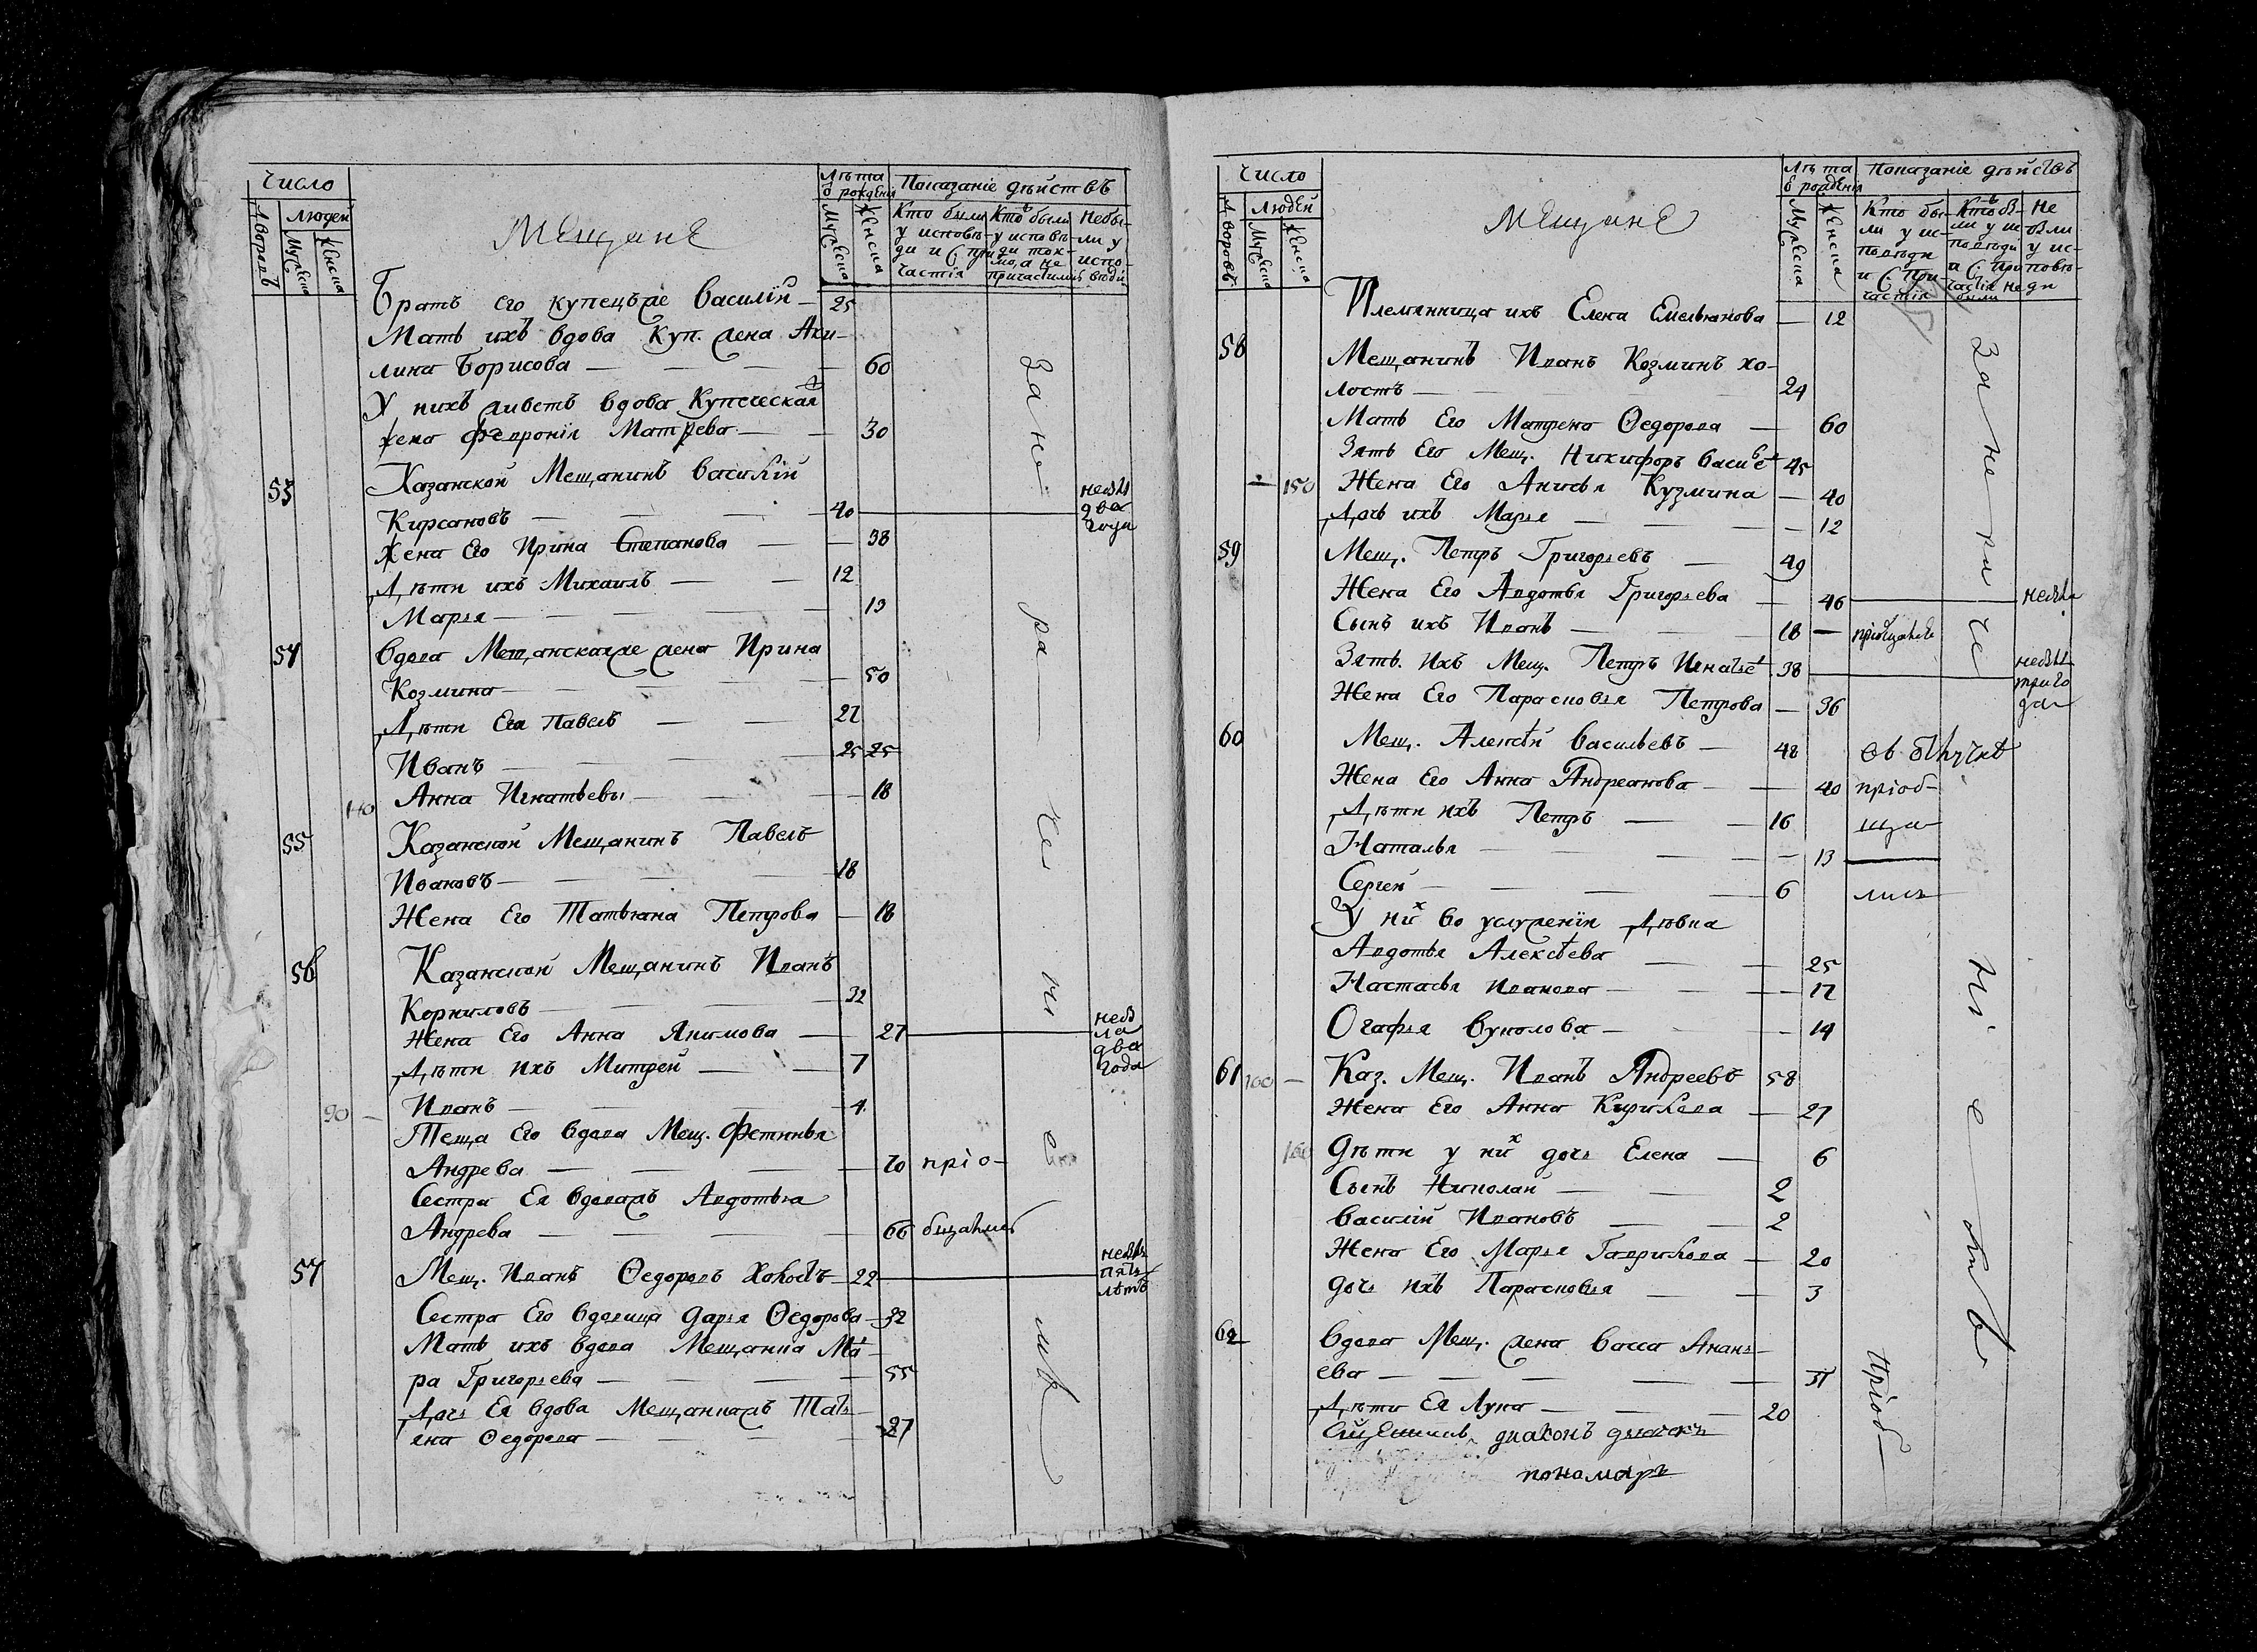 Число
Лѣта
ѿ рожденія
Показаніе дѣйствъ
Дворовъ
Людей
Мужеска
Женска
Мещане
Мужеска
Женска
Кто были
у исповѣ-
ди и С. при
частія
Кто были
у исповѣ-
ди ток-
мо, а не
причастились
Небы-
ли у
испо-
вѣди
Братъ Его купецъже Василій — 25
Мать ихъ вдова Куп. жена Аки-
лина Борисова — 60
У нихъ живетъ вдова Купеческая
жена Февронія — 30
53 Казанской Мещанинъ Василій
Кирсановъ — 40
небы
два
года
Жена Его Ирина Степанова — 38
Дѣти ихъ Михаилъ — 12
Марья — 13
54 Вдова Мещанскаяже жена Ирина
Козмина — 50
Дѣти Ея Павелъ — 27
Иванъ — 25 25
140 Анна Игнатьевы — 18
55 Казанской Мещанинъ Павелъ
Ивановъ — 18
Жена Его Татьяна Петрова — 18
56 Казанской Мещанинъ Иванъ
Корниловъ — 32
Жена Его Анна Якимова — 27
небы
ла
два
года
Дѣти ихъ Митрей — 7
90 — Иванъ — 4
Теща Его вдова Мещ. Фетинья
Андрева — 70 пріо-
Сестра Ея вдоважъ Авдотья
Андрева — 66 бщались
57 Мещ. Иванъ Ѳедоровъ Холостъ — 22
небылъ
пять
лѣтъ
Сестра Его вдовица Дарья Ѳедорова — 32
Мать ихъ вдова Мещанка Ма-
ра Григорьева — 55
Дочь Ея вдова Мещанкажъ Тать-
яна Ѳедорова — 27
за не ра че ни емъ
Число
Лѣта
ѿ рожденія
Показаніе дѣйствъ
Дворовъ
Людей
Мужеска
Женска
Мещане
Мужеска
Женска
Кто бы-
ли у ис-
повѣди
и С. При-
частія
Не
были
у ис-
повѣ-
ди
Племянница ихъ Елена Емельянова — 12
58 Мещанинъ Иванъ Козминъ хо-
лостъ — 24
Мать Его Матрена Ѳедорова — 60
Зять Его Мещ. Никифоръ Васиъе 45
— 150 Жена Его Анисья Кузмина — 40
Дочь ихъ Марья — 12
59 Мещ. Петръ Григорьевъ — 49
Жена Его Авдотья Григорьева — 46 небыла
Сынъ ихъ Иванъ — 18 — пріобщался
Зять ихъ Мещ. Петръ Игнатье 38
небы
триго
да
Жена Его Парасковья Петрова — 36
60 Мещ. Алексѣй Васильевъ — 48
Жена Его Анна Андреанова — 40 пріоб-
Дѣти ихъ Петръ — 16 ща
Наталья — 13
Сергей — 6 лись
У них во услуженіи Дѣвка
Авдотья Алексѣева — 25
Настасья Иванова — 17
Огафья Вуколова — 14
61 100 — Каз. Мещ. Иванъ Андреевъ 58
Жена Его Анна Кирилова — 27
160 Дѣти у них дочь Елена — 6
Сынъ Николай — 2
Василій Ивановъ — 2
Жена Его Марья Гаврилова — 20
Дочь ихъ Парасковья — 3
62 Вдова Мещ. жена Васса Анань-
ева — 51
Дѣти Ея Лука — 20
пріоб
Священникъ діаконъ дьячокъ
пономарь
за не ра че ні е мъ